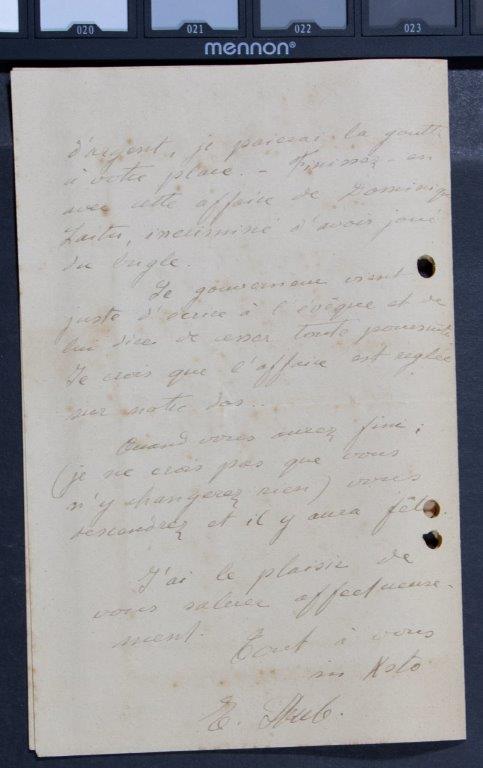 020 021 022 023
mennon®
d'argent, je paierai la goutte
à votre place. - Finissez-en
avec cette affaire de Dominique
incriminé d'avoir joué
du bugle.
Le gouverneur vient
juste d'écrire à l'évêque et de
lui dire de cesser toute poursuite
Je crois que l'affaire est réglée
sur notre dos..
Quand vous aurez fini,
(je ne crois pas que vous
n'y changerez rien) vous
descendrez et il y aura fête.
J'ai le plaisir de
vous saluer affectueuse-
ment.
Tout à vous
in Xsto
E.